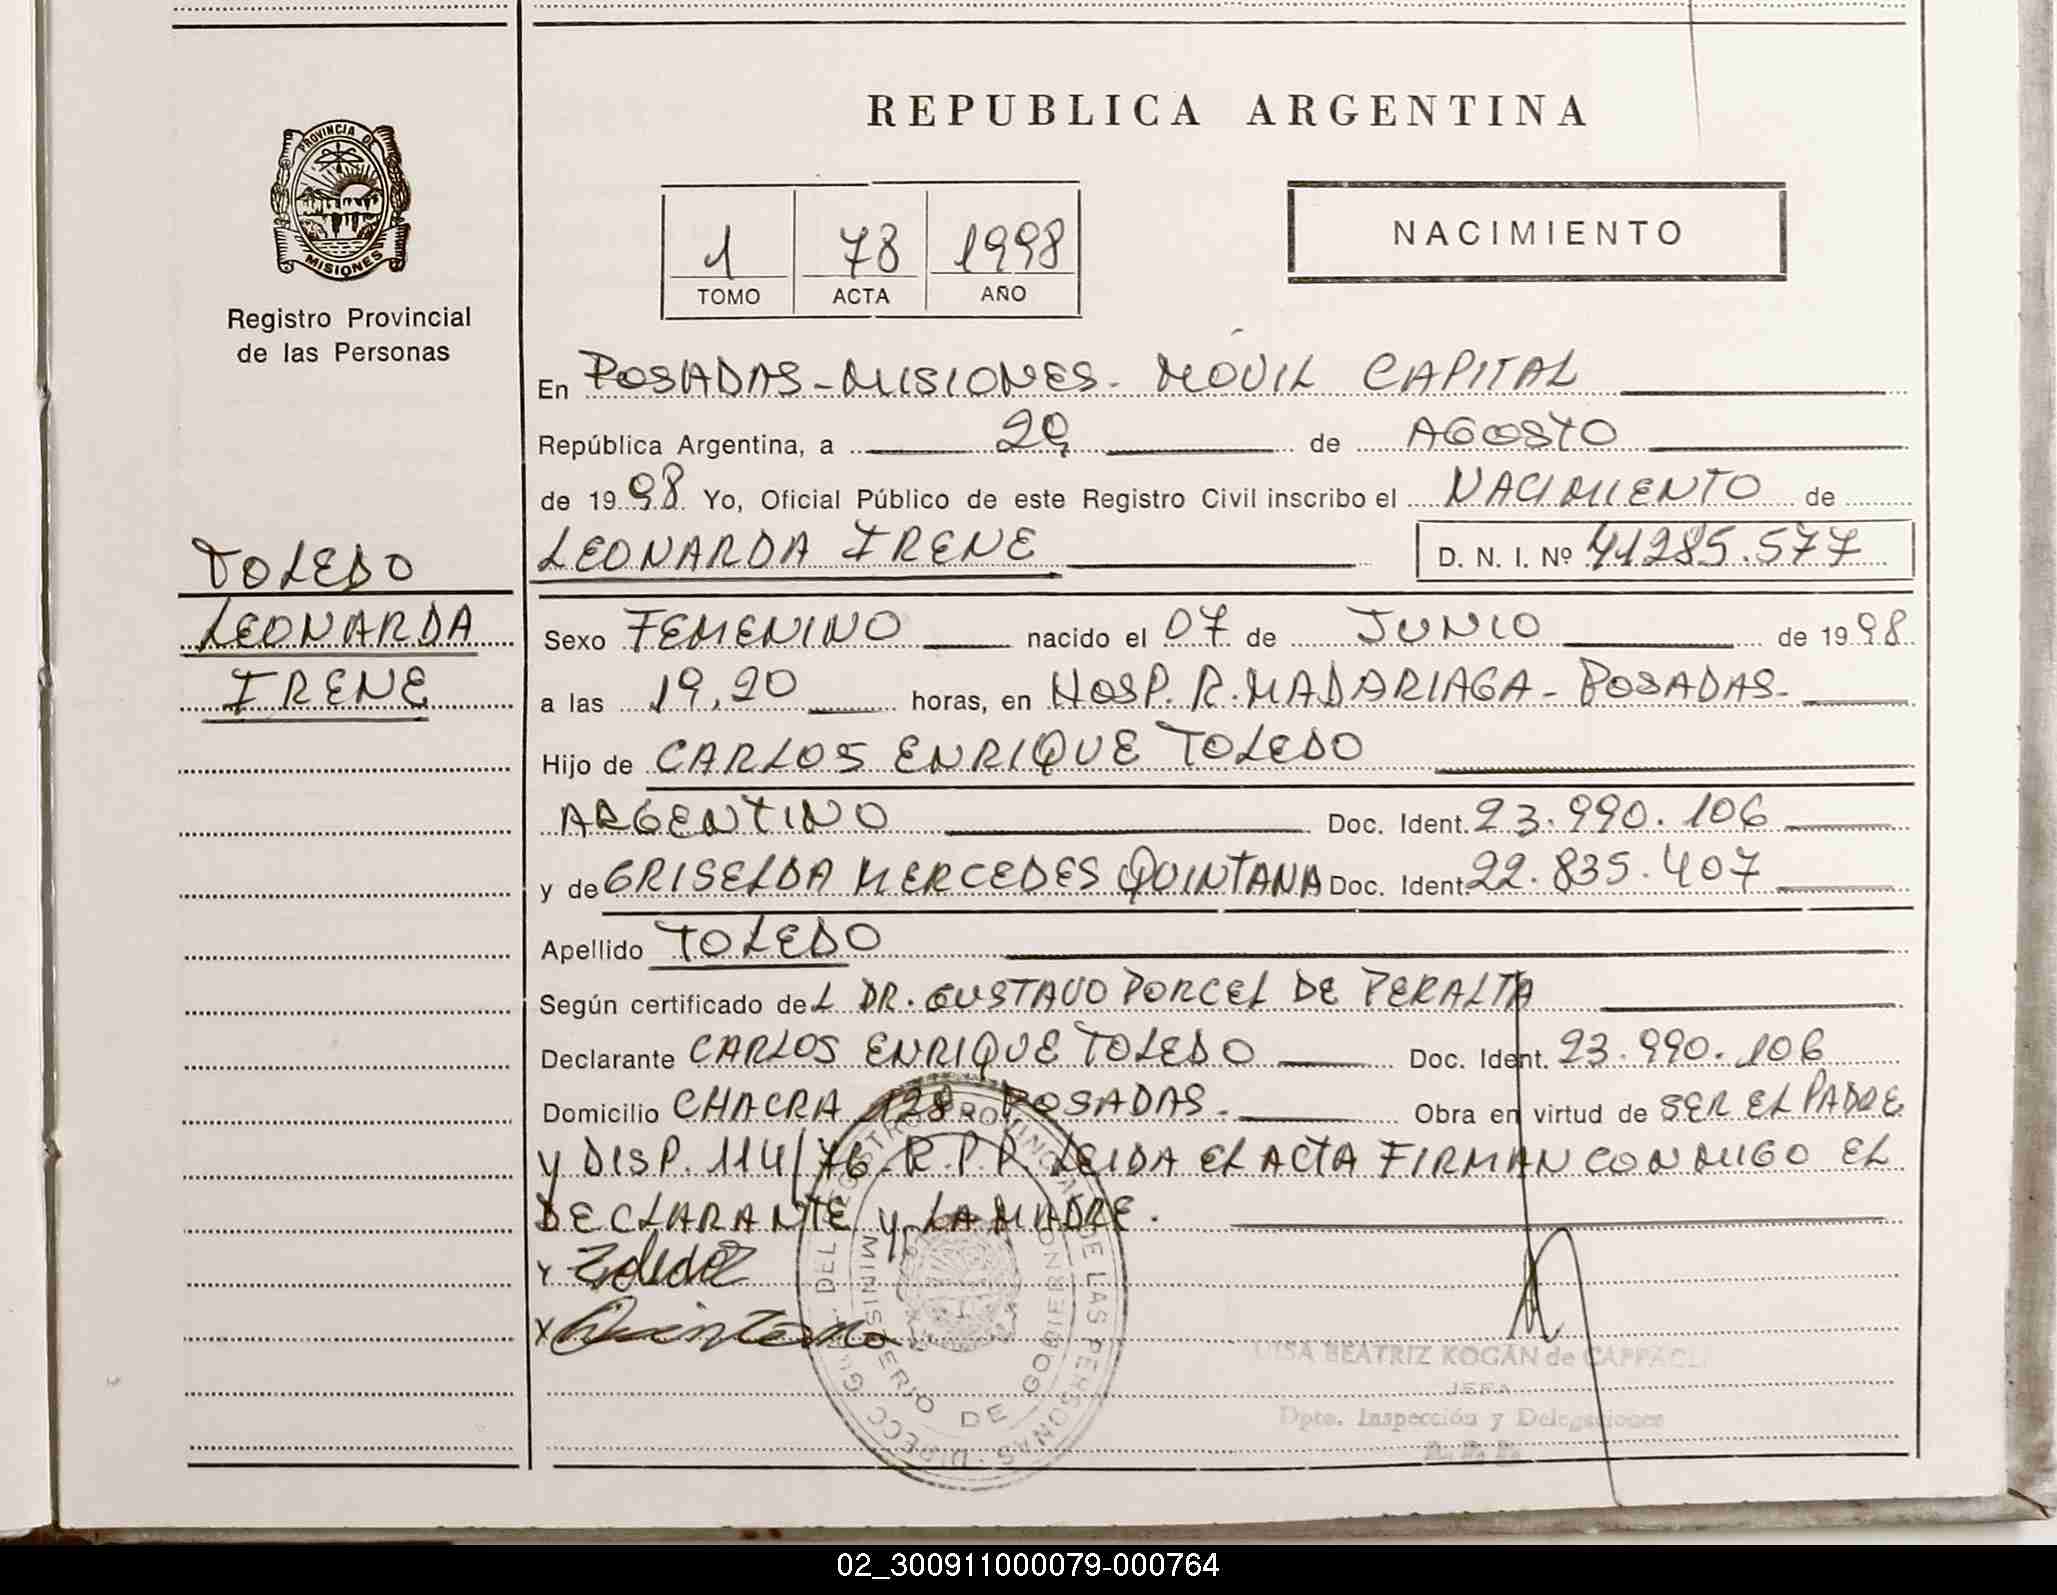 PROVINCIA DE
MISIONES
Registro Provincial
de las Personas
TOLEDO
LEONARDA
IRENE
REPUBLICA ARGENTINA
1 78 1998
TOMO ACTA AÑO
NACIMIENTO
En POSADAS-MISIONES- MÓVIL CAPITAL
República Argentina, a 20 de AGOSTO
de 1998 Yo, Oficial Público de este Registro Civil inscribo el NACIMIENTO de
LEONARDA IRENE D. N. I. Nº 41285.577
Sexo FEMENINO nacido el 07 de JUNIO de 1998
a las 19,20 horas, en HOSP. R. MADARIAGA - POSADAS-
Hijo de CARLOS ENRIQUE TOLEDO
ARGENTINO Doc. Ident. 23.990.106
y de GRISELDA MERCEDES QUINTANA Doc. Ident 22.835.407
Apellido TOLEDO
Según certificado deL DR. GUSTAVO PORCEL DE PERALTA
Declarante CARLOS ENRIQUE TOLEDO Doc. Ident. 23.990.106
Domicilio CHACRA 128 POSADAS. Obra en virtud de SER EL PADRE
y DISP. 114/76 R.P.P. LEIDA EL ACTA FIRMAN CONMIGO EL
DECLARANTE y LA MADRE.
Toledo
x Quintana
DIRECC. GRAL. DEL REGISTRO PROVINCIAL DE LAS PERSONAS
MINISTERIO DE GOBIERNO
BEATRIZ KOGAN de
JEFA
Dpto. Inspección y Delegaciones
02_300911000079-000764